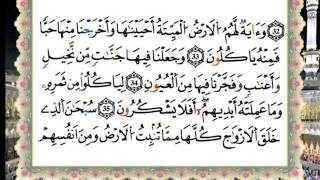 وَءَايَةٌ لَّهُمُ الْأَرْضُ الْمَيْتَةُ أَحْيَيْنَاهَا وَأَخْرَجْنَا مِنْهَا حَبًّا
فَمِنْهُ يَأْكُلُونَ 33 وَجَعَلْنَا فِيهَا جَنَّاتٍ مِّن نَّخِيلٍ
وَأَعْنَابٍ وَفَجَّرْنَا فِيهَا مِنَ الْعُيُونِ 34 لِيَأْكُلُوا مِن ثَمَرِهِ
وَمَا عَمِلَتْهُ أَيْدِيهِمْ أَفَلَا يَشْكُرُونَ 35 سُبْحَانَ الَّذِي
خَلَقَ الْأَزْوَاجَ كُلَّهَا مِمَّا تُنبِتُ الْأَرْضُ وَمِنْ أَنفُسِهِمْ